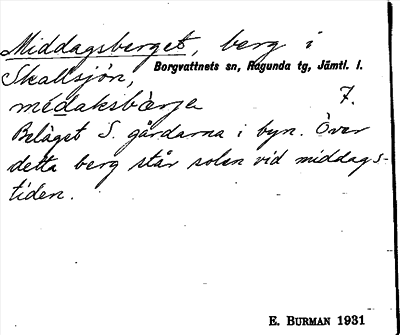 Middagsberget, berg i
Skallsjön, Borgvattnets sn, Ragunda tg, Jämtl. l.
medaksbærje 7.
Beläget S. gårdarna i byn. Över
detta berg står solen vid middags-
tiden.
E. BURMAN 1931